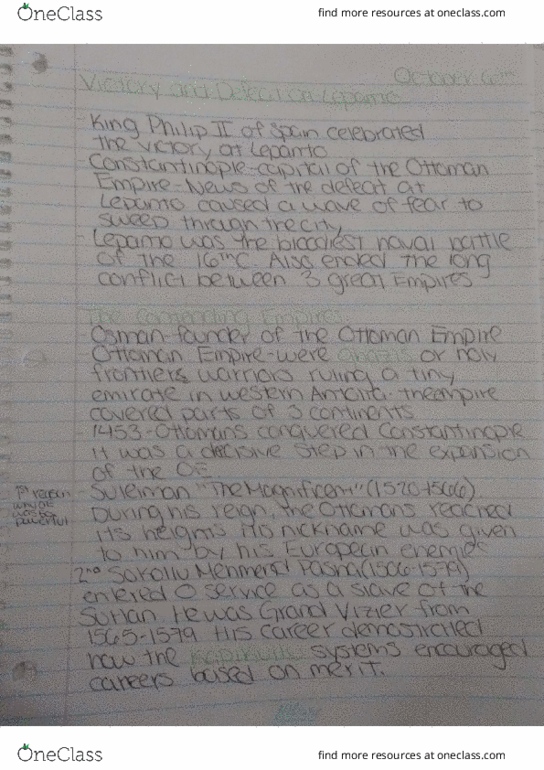 OneClass
find more resources at oneclass.com
October 6th
Victory and Defeat on Lepanto
King Philip II of Spain celebrated
the victory at Lepanto
Constantinople-capital of the Ottoman
Empire-News of the defeat at
Lepanto caused a wave of fear to
sweep through the city
Lepanto was the bloodiest naval battle
of the 16thC. Also ended the long
conflict between 3 great Empires
The Contending Empires
-Osman-founder of the Ottoman Empire
Ottoman Empire-were ghazis or holy
frontiers warriors ruling a tiny
emirate in western the empire
covered parts of 3 continents
-1453-Ottomans conquered Constantinople
it was a decisive step in the expansion
of the OE
-Suleiman "The Magnificent" (1520-1566)
During his reign, the Ottomans reached
its heights. His nickname was given
to him by his European enemies
1st
powerful
2nd Sokollu Mehmed Pasha (1506-1579)
entered O service as a slave of the
Sultan. He was Grand Vizier from
1565-1579. His career demostrated
how the systems encouraged
careers based on merit.
OneClass
find more resources at oneclass.com